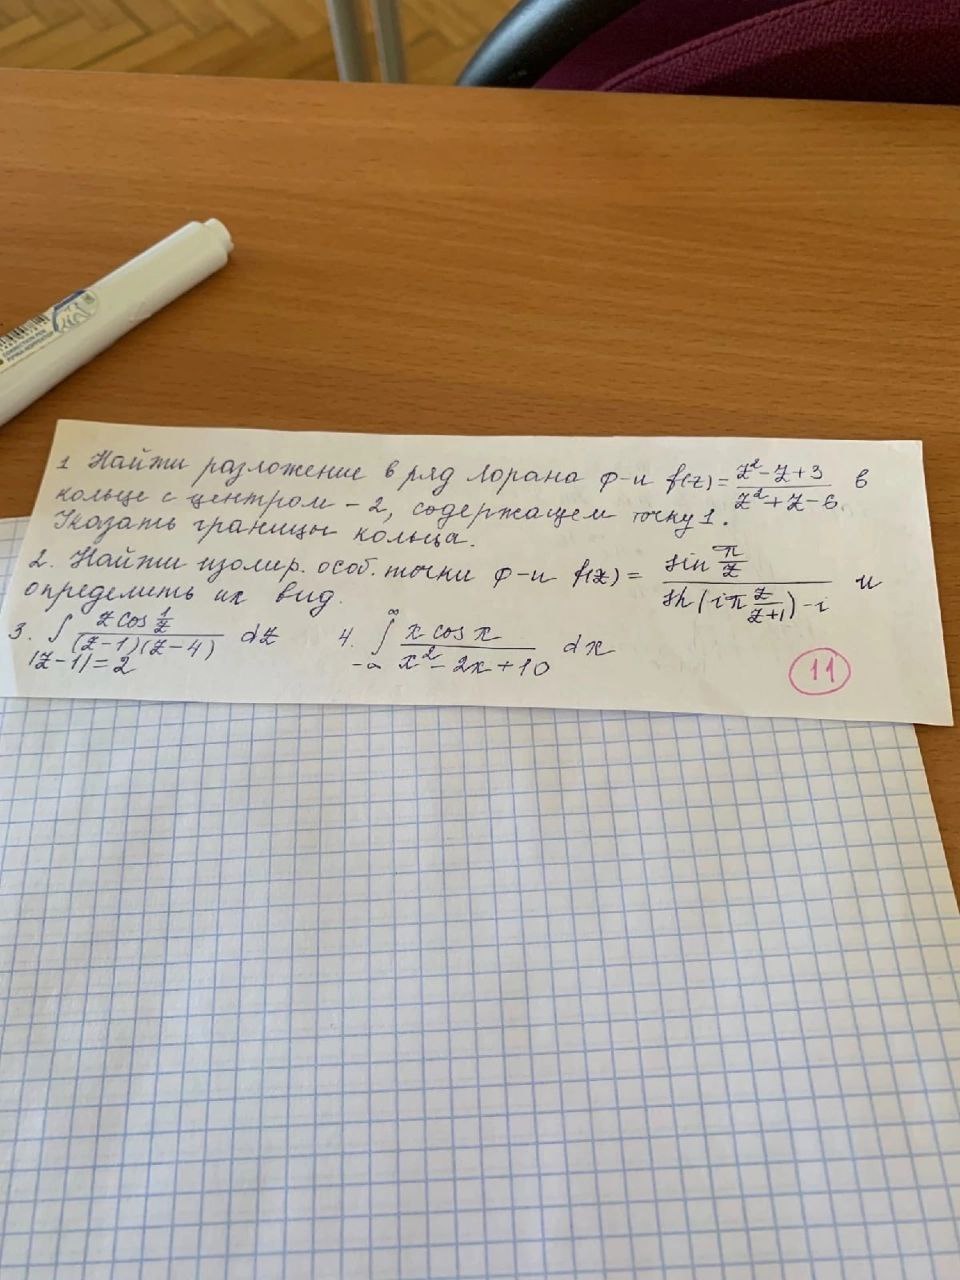 1 Найти разложение в ряд Лорана ф-и f(z) = \frac{z^2 - z + 3}{z^2 + z - 6} в
кольце с центром - 2, содержащем точку 1.
Указать границы кольца.
2. Найти изолир. особ. точки ф-и f(z) = \frac{\sin \frac{π}{z}}{sh(iπ \frac{z}{z+1}) - i} и
определить их вид.
3. ∫_{|z-1|=2} \frac{z cos \frac{1}{z}}{(z-1)(z-4)} dz 4. ∫_{-∞}^{∞} \frac{x cos x}{x^2 - 2x + 10} dx
11